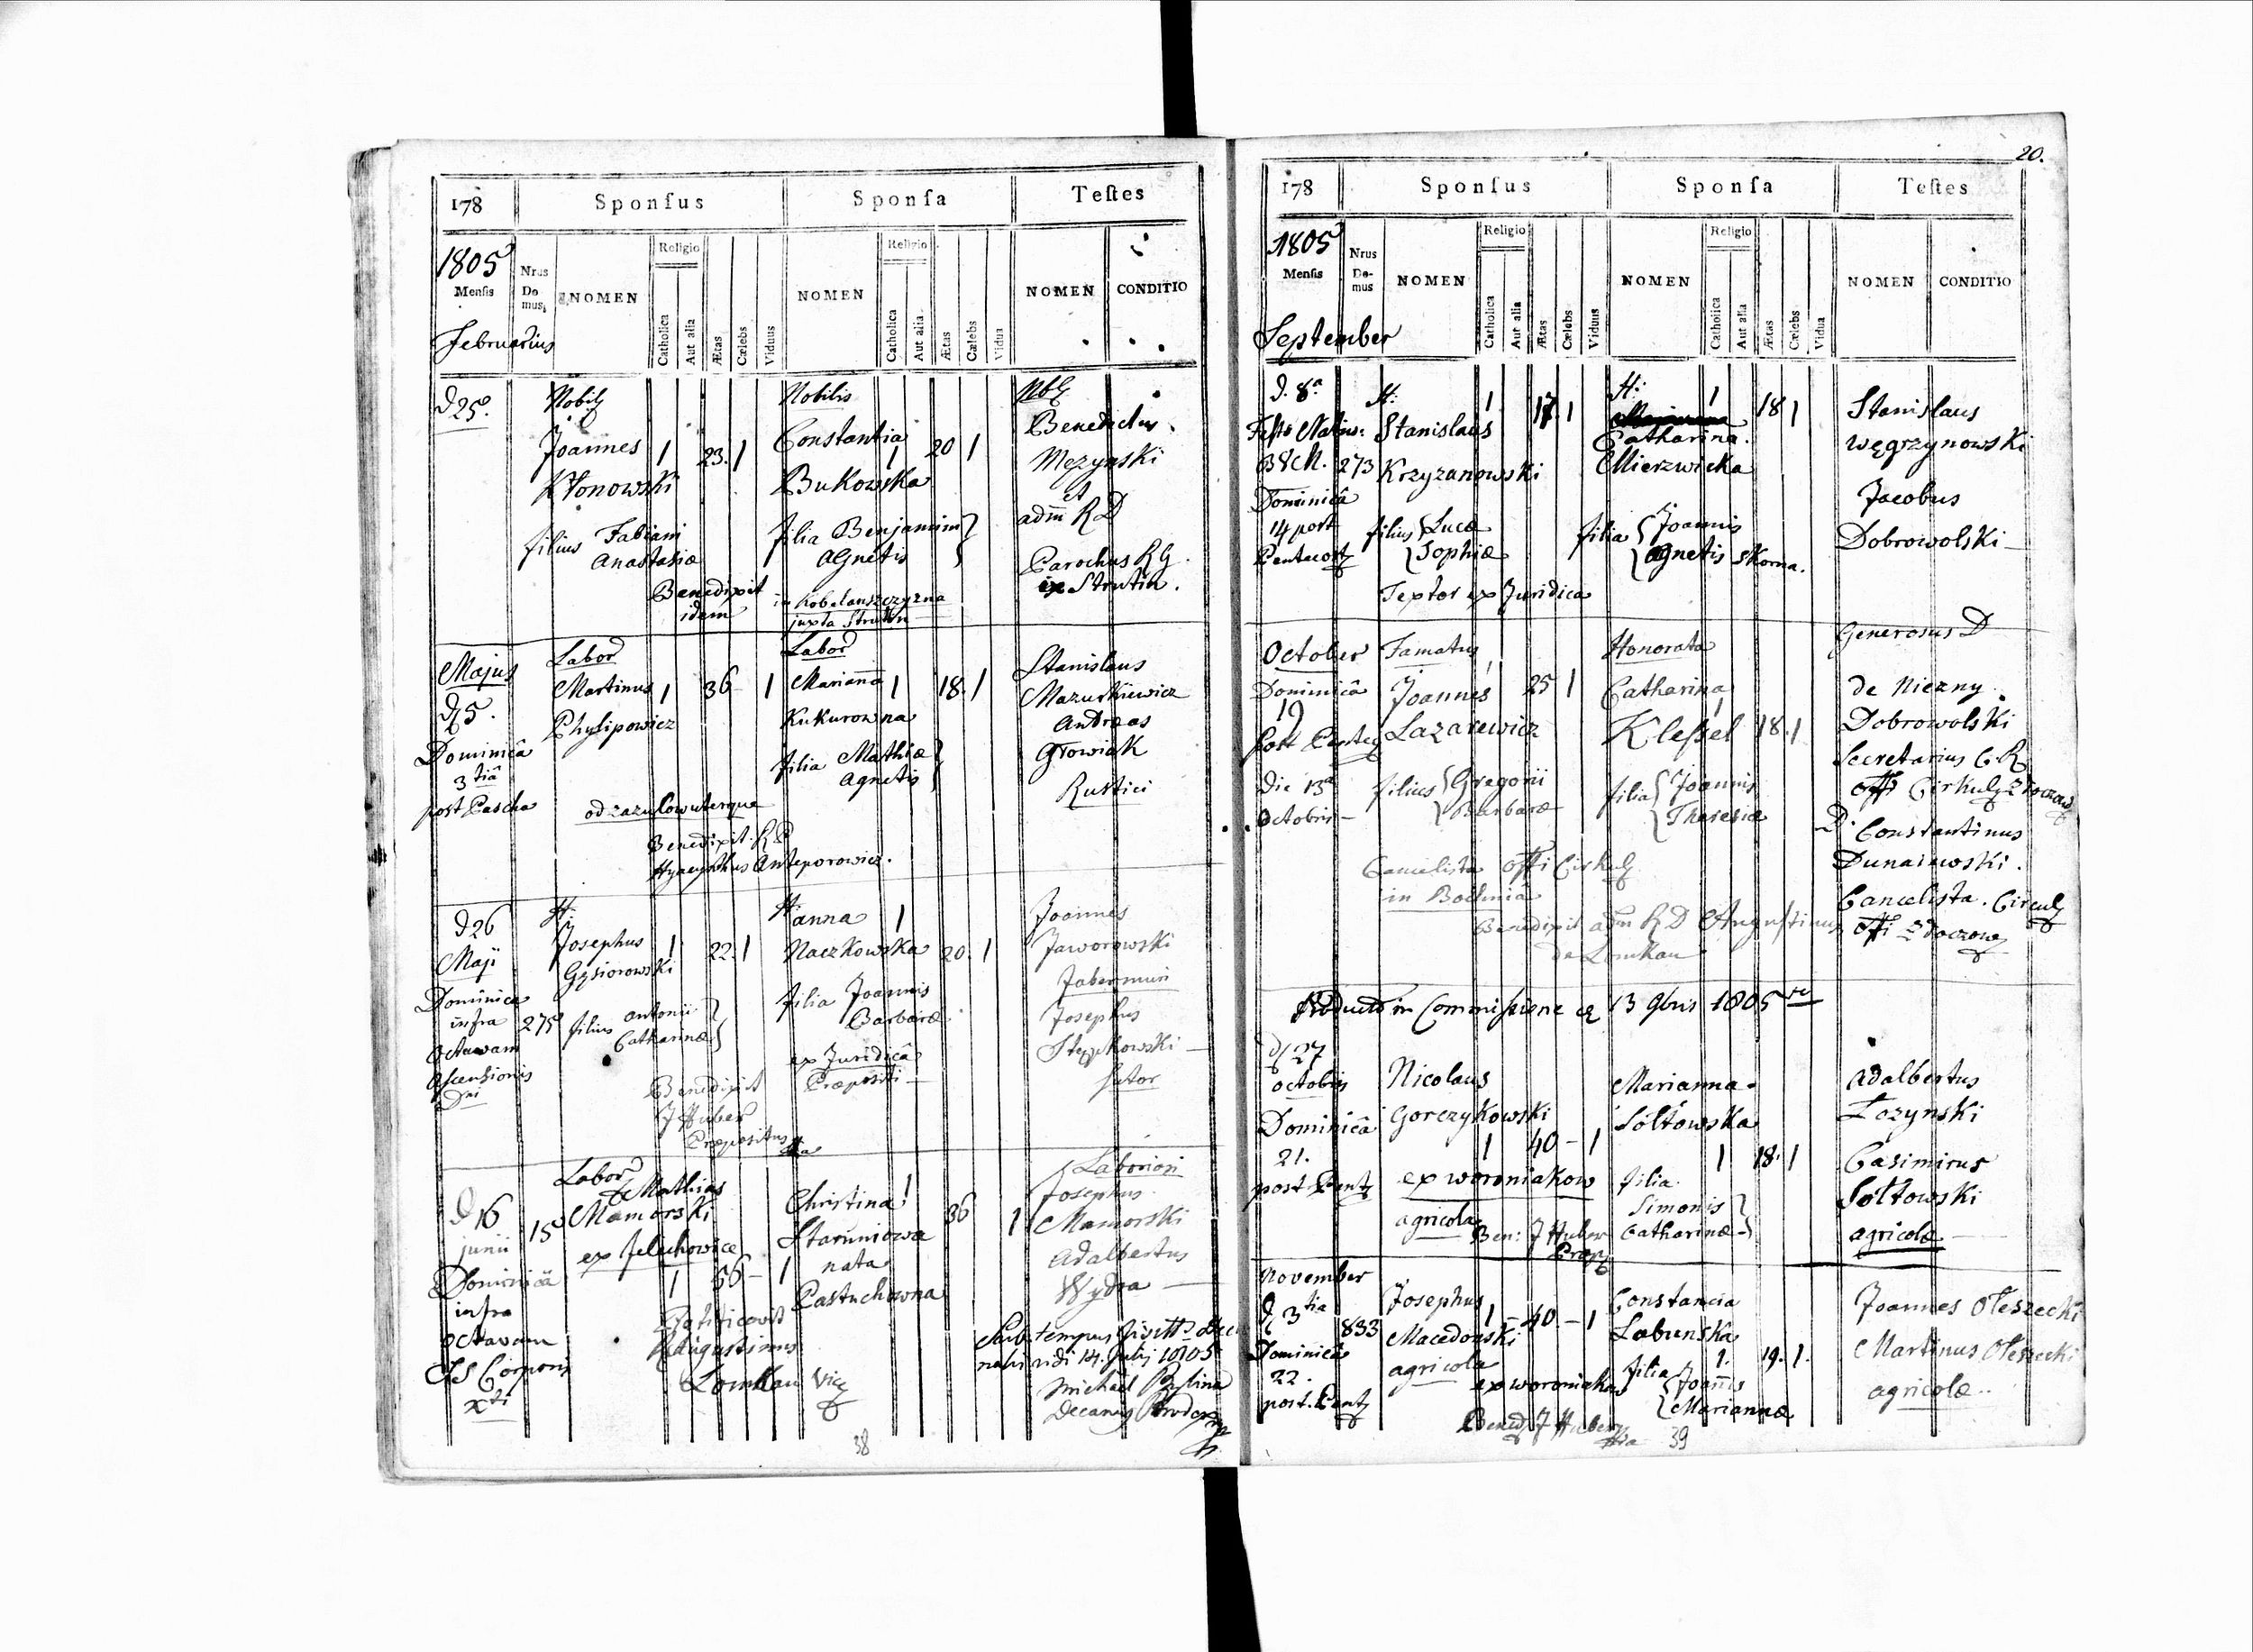 178 Sponſus Sponſa Teſtes
1805
Menſis
Nrus Do mus, NOMEN Religio Catholica Aut alia Ætas Cœlebs Viduus NOMEN Religio Catholica Aut alia Ætas Cœlebs Vidua NOMEN CONDITIO
Februarius
d 25.
Nobilis
Joannes 1 23. 1
Kłonowski
filius Fabiani
Anastasiæ
Benedixit
idem
Nobilis
Constantia 1 20 1
Bukowska
filia Benjamim
Agnetis
in Kobelauszczyzna
juxta Strutin
Benedictus
Męzynski
et
adm R D
Parochus R G
ex Strutin.
Majus
d 5.
Dominicâ
3tiâ
post Pascha
Labor
Martinus 1 36 1
Phylipowicz
od zazulow uterque
Benedixit R P
Hyacynthus Anteporowicz.
Labor
Marianna 1 18. 1
Kukurowna
filia Mathiæ
Agnetis
Stanislaus
Mazurkiewicz
Andreas
Growiak
Rustici
d 26
Maji
Dominica
infra
Octavam
Ascensionis
Dni
275
H.
Josephus 1 22. 1
Gąsiorowski
filius Antonii
Catharinæ
Benedixit
J Huber
Præpositus
H anna 1
Naczkowska 20. 1
filia Joannis
Barbaræ
ex Juridicâ
Præpositi
Joannes
Jaworowski
Faber muri
Josephus
Stępkowski
sutor
d 16
junii
Dominicâ
infra
Octavam
SS Corporis
Xti
15
Labor
Mathias
Mamorski
ex Jelechowice
1 56 - 1
Ratificavit
Augustinus
Lomkau Vic
Christina 1
Staruniowa 36 1
nata
Pastuchowna
Laboriosi
Josephus
Mamorski
Adalbertus
Wydra
Sub tempus
vidi 14. Julij 1805
Michael Bylina
Decanus
38
20.
178 Sponſus Sponſa Teſtes
1805
Menſis
Nrus Do- mus NOMEN Religio Catholica Aut alia Ætas Cœlebs Viduus NOMEN Religio Catholica Aut alia Ætas Cœlebs Vidua NOMEN CONDITIO
September
d. 8.a
Festo Nativ:
B V M.
Dominicâ
14 post
Pentecost
273
H: 1 17. 1
Stanislaus
Krzyzanowski
filius Lucæ
Sophiæ
Textor ex Juridica
H: 1 18 1
Catharina.
Mierzwicka
filia Joannis
Agnetis Skorna.
Stanislaus
Węgrzynowski
Jacobus
Dobrowolski
October
Dominicâ
19
post Pentec
Die 13a
Octobris
Famatus
Joannes 1 25 1
Lazarewicz
filius Gregorii
Barbaræ
Cancelista Offi Cirkul
in Bochniâ
Benedixit adm R D Augustinus
de Lomkau
Honorata
Catharina
Kleßel 1 18. 1
filia Joannis
Theresiæ
Generosus D
de Niezny
Dobrowolski
Secretarius C R
Offi Cirkul Złoczow
D. Constantinus
Dunaiewski.
Cancelista. Circul
Offi Złoczow
13 9bris 1805
d 27
octobris
Dominicâ
21.
post Pent
Nicolaus
Gorczykowski
1 40 - 1
ex woroniakow
agricola
Ben: J Huber
Marianna
Sołtowska
1 18. 1
filia
Simonis
Catharinæ
Adalbertus
Łozynski
Casimirus
Sołtowski
agricolæ
November
d 3tia
Dominica
22.
post. Pent
833
Josephus 1 - 40 - 1
Macedonski
agricola
ex woroniakow
Bened J Huber
Constancia
Labunska
1. 19. 1.
filia Joannis
Mariannæ
Joannes Oleszecki
Martinus Oleszecki
agricolæ
39